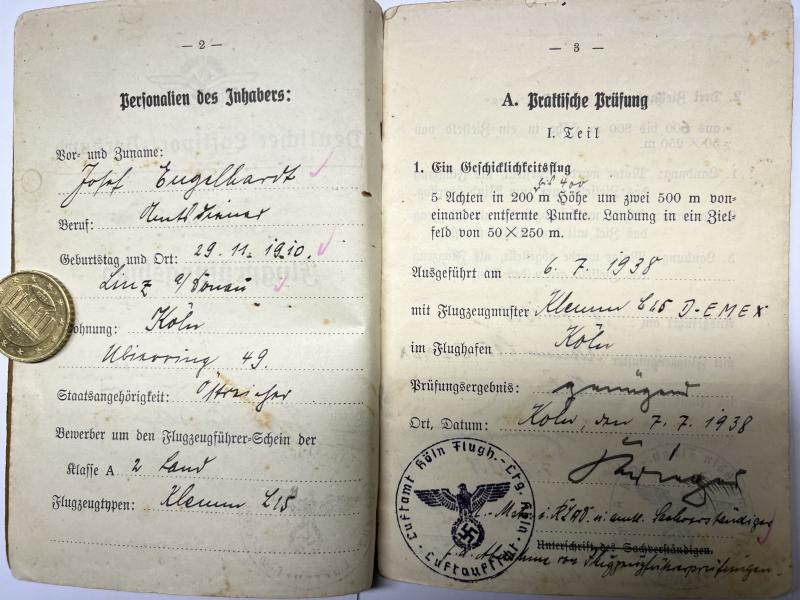 — 2 —
Personalien des Inhabers:
Vor- und Zuname:
Josef Engelhardt
Beruf: Amtsdiener
Geburtstag und Ort: 29. 11. 1910.
Linz a/Donau
Wohnung: Köln
Ubierring 49.
Staatsangehörigkeit: Östreicher
Bewerber um den Flugzeugführer-Schein der
Klasse A 2 Land
Flugzeugtypen: Klemm L 25
— 3 —
A. Praktische Prüfung
I. Teil
1. Ein Geschicklichkeitsflug
bis 400
5 Achten in 200 m Höhe um zwei 500 m von-
einander entfernte Punkte. Landung in ein Ziel-
feld von 50 × 250 m.
Ausgeführt am 6. 7. 1938
mit Flugzeugmuster Klemm L 25 D-EMEX
im Flughafen Köln
Prüfungsergebnis: genügend
Ort, Datum: Köln, den 7. 7. 1938
Luftamt Köln Flugh.-Ltg. Köln
Luftaufsicht
u. amtl. Sachverständiger
Unterschrift des Sachverständigen.
von Flugzeugführerprüfungen.